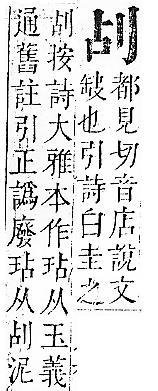 㓠
都見切音店說文
缺也引詩白圭之
㓠按詩大雅本作玷从玉義
通舊註引正譌廢玷从㓠泥